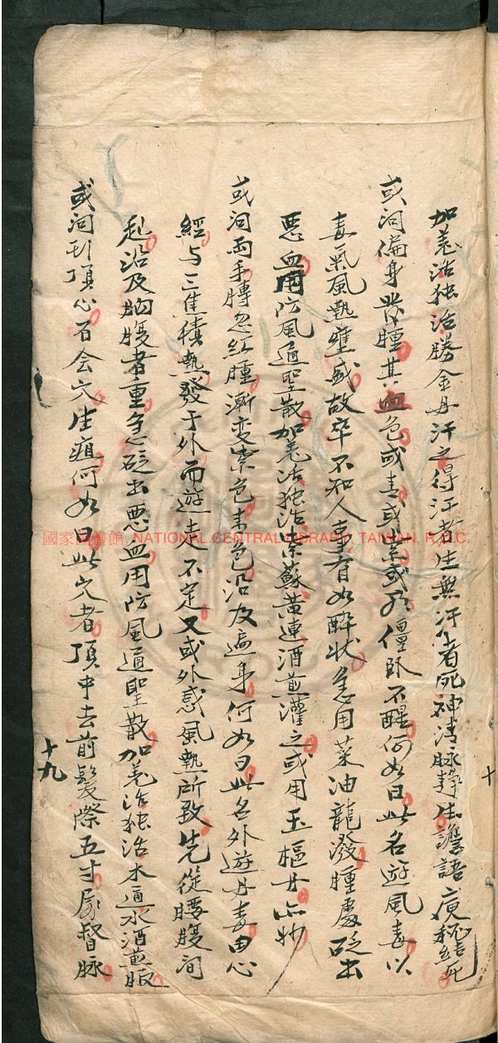 加羌活独活勝金丹汗之得汗者生無汗者死神清脉静生譫語便秘結死
或问徧身浮腫其血色或青或紫或紅僵卧不醒何如曰此名遊風毒以
毒氣風熱壅盛故卒不知人事有如醉状急用菜油龍潑腫處砭出
悪血用防風通聖散加羌活独活紫蘇黄連酒煎灌之或用玉樞丹亦妙
或问两手膊忽紅腫漸变紫色青色沿及遍身何如曰此名外遊丹毒由心
經与三焦積熱發于外而遊走不定又或外感風熱所致先從腰腹间
起沿及胸腹者重急砭出悪血用防風通聖散加羌活独活木通水酒煎服
或问到頂心百会穴生疽何如曰此穴者頂中去前髮際五寸属督脉
十九
十
國家圖書館 NATIONAL CENTRAL LIBRARY, TAIWAN, R.O.C.